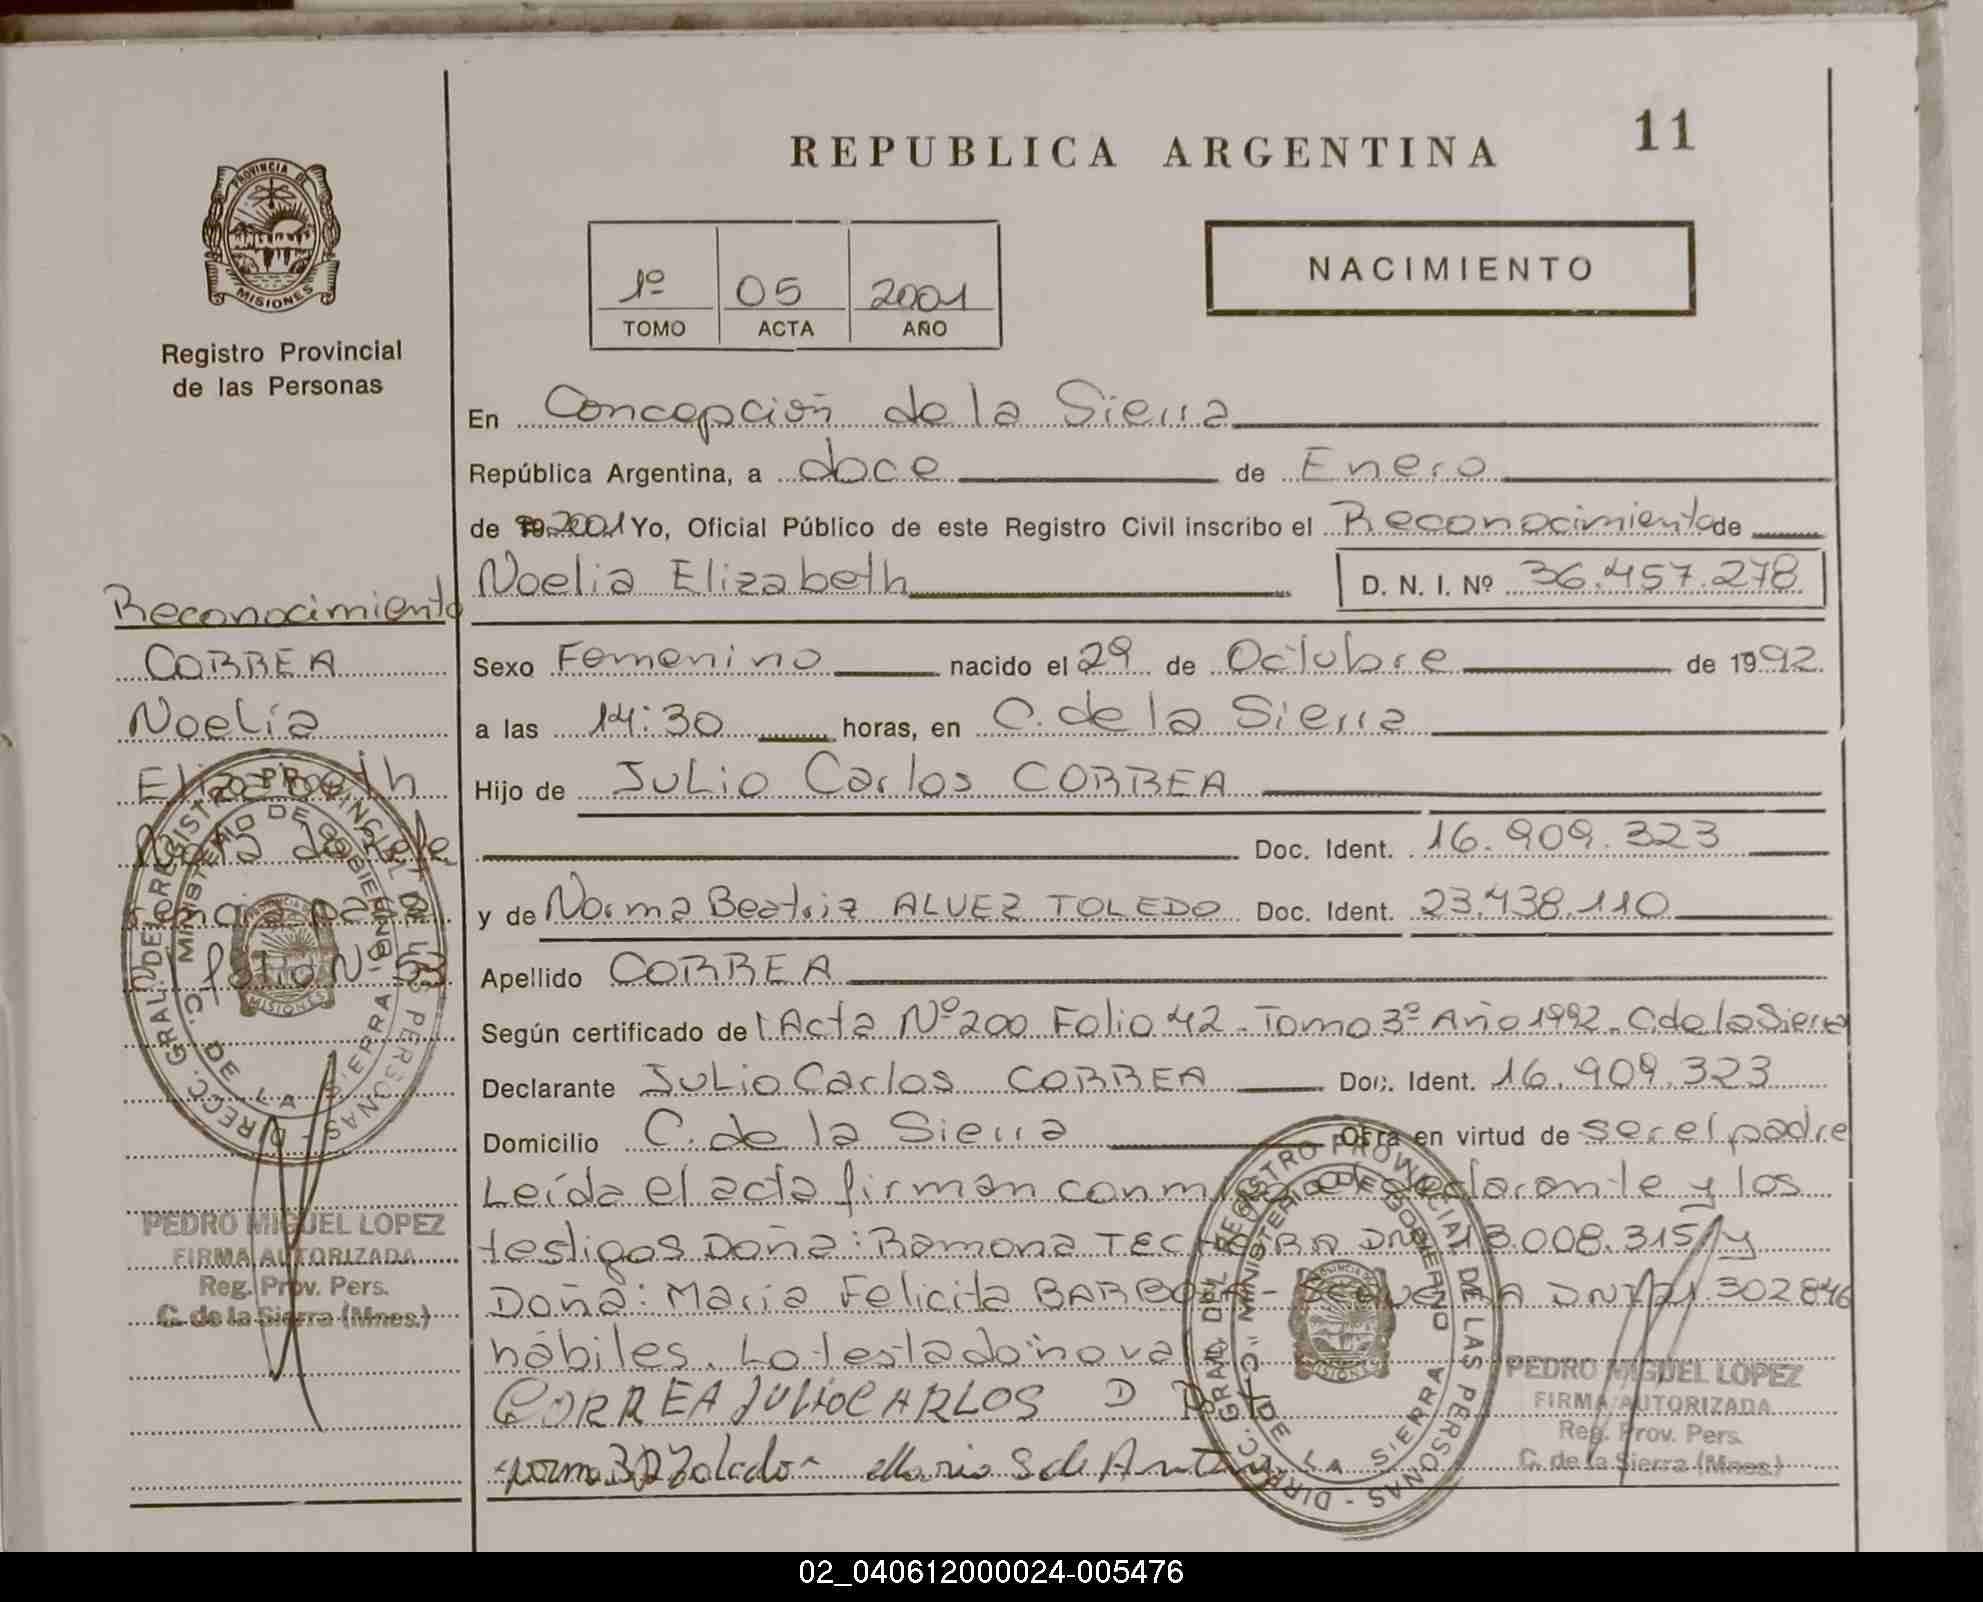 11
REPUBLICA ARGENTINA
NACIMIENTO
PROVINCIA DE
MISIONES
Registro Provincial
de las Personas
1º 05 2001
TOMO ACTA AÑO
En Concepción de la Sierra
República Argentina, a doce de Enero
de 19 2001 Yo, Oficial Público de este Registro Civil inscribo el Reconocimiento de
Noelia Elizabeth D. N. I. Nº 36.457.278
Sexo Femenino nacido el 29 de Octubre de 1992
a las 14:30 horas, en C. de la Sierra
Hijo de Julio Carlos CORREA
Doc. Ident. 16.909.323
y de Norma Beatriz ALVEZ TOLEDO Doc. Ident. 23.438.110
Apellido CORREA
Según certificado del Acta Nº 200 Folio 42 - Tomo 3º Año 1992 - C de la Sierra
Declarante Julio Carlos CORREA Doc. Ident. 16.909.323
Domicilio C. de la Sierra Obra en virtud de ser el padre
Leída el acta firman conmigo el declarante y los
testigos Doña: Ramona DNI 13.008.315 y
Doña: Maria Felicita BARBOZA - DNI 302846
hábiles. Lo testado no va
CORREA JULIO CARLOS
Reconocimiento
CORREA
Noelia
Elizabeth
Nota de
folio Nº 53
DIRECC. GRAL. DEL REGISTRO PROVINCIAL DE LAS PERSONAS
MINISTERIO DE GOBIERNO
C. DE LA SIERRA
MISIONES
PEDRO MIGUEL LOPEZ
FIRMA AUTORIZADA
Reg. Prov. Pers.
C. de la Sierra (Mnes.)
DIRECC. GRAL. DEL REGISTRO PROVINCIAL DE LAS PERSONAS
MINISTERIO DE GOBIERNO
C. DE LA SIERRA
MISIONES
PEDRO MIGUEL LOPEZ
FIRMA AUTORIZADA
Reg. Prov. Pers.
C. de la Sierra (Mnes.)
02_040612000024-005476